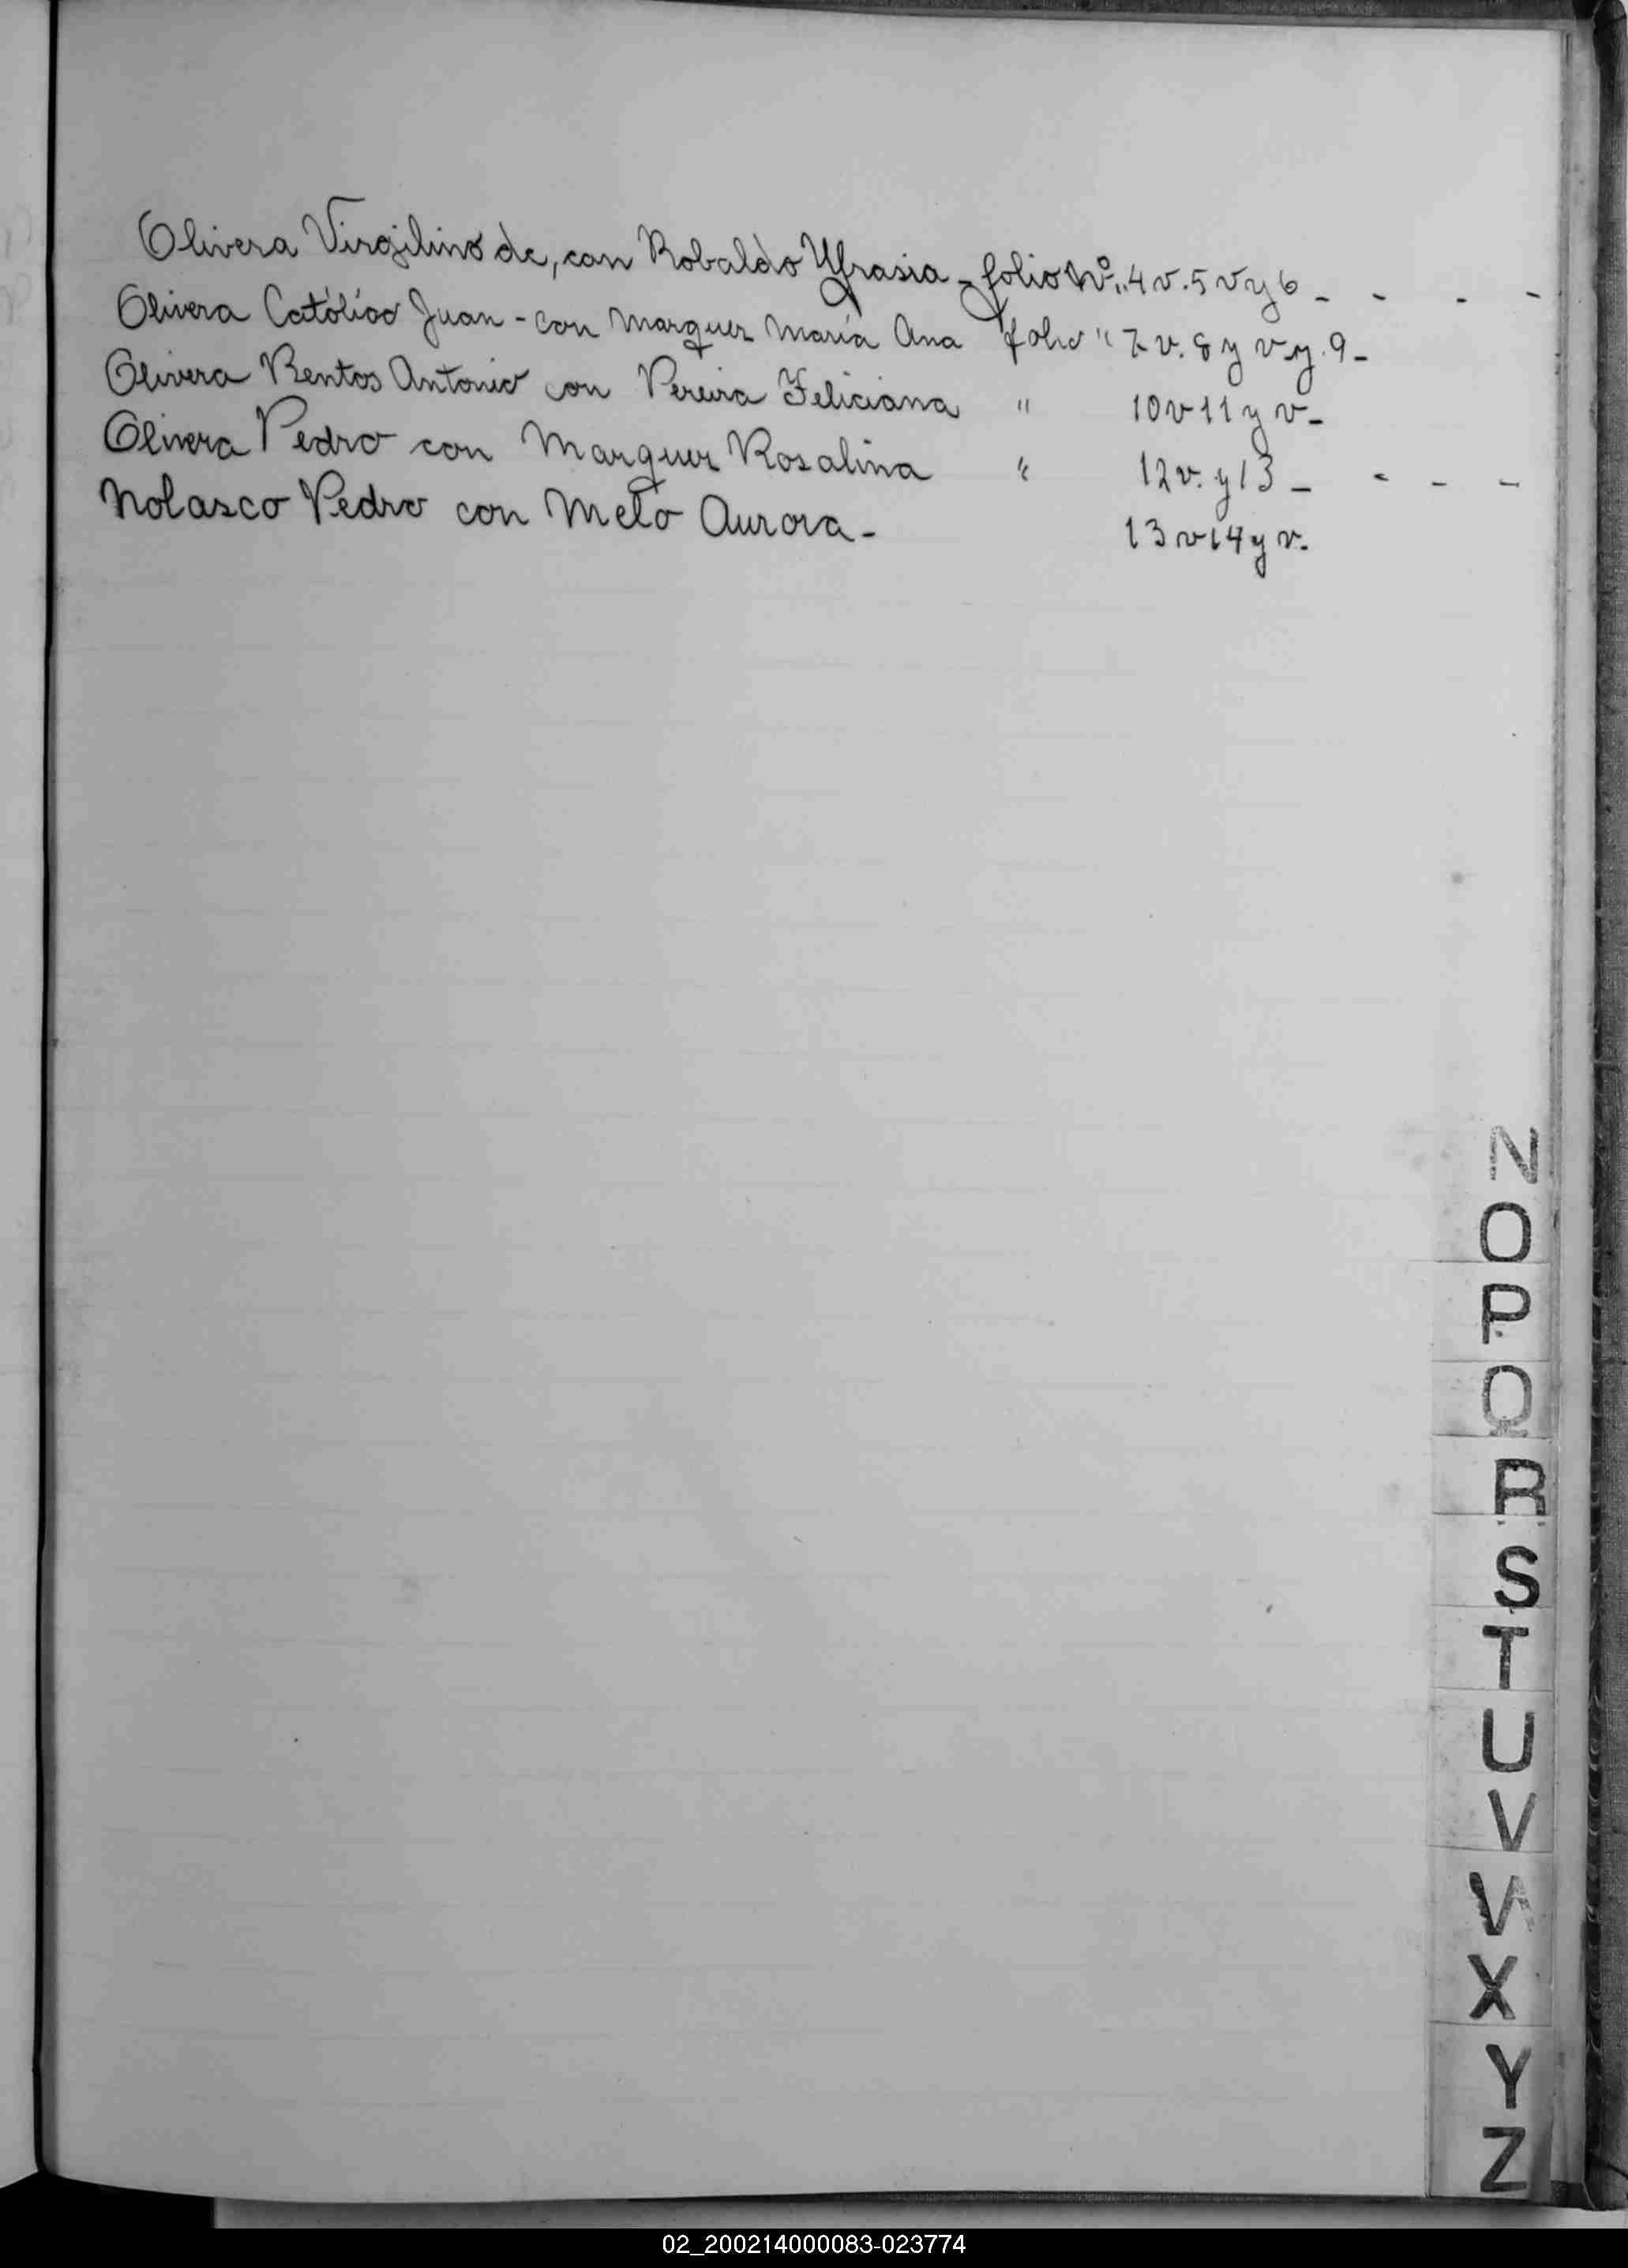 Olivera Virgilino de, con Robaldo Yfrasia - folio Nº. " 4 v. 5 v y 6 - - - -
Olivera Católico Juan - con Marquez María Ana folio " 7 v. 8 y v y. 9 -
Olivera Bentos Antonio con Pereira Feliciana " 10 v 11 y v -
Olivera Pedro con Marquez Rosalina " 12 v. y 13 - - - -
Nolasco Pedro con Melo Aurora - 13 v 14 y v.
N
O
P
Q
R
S
T
U
V
W
X
Y
Z
02_200214000083-023774